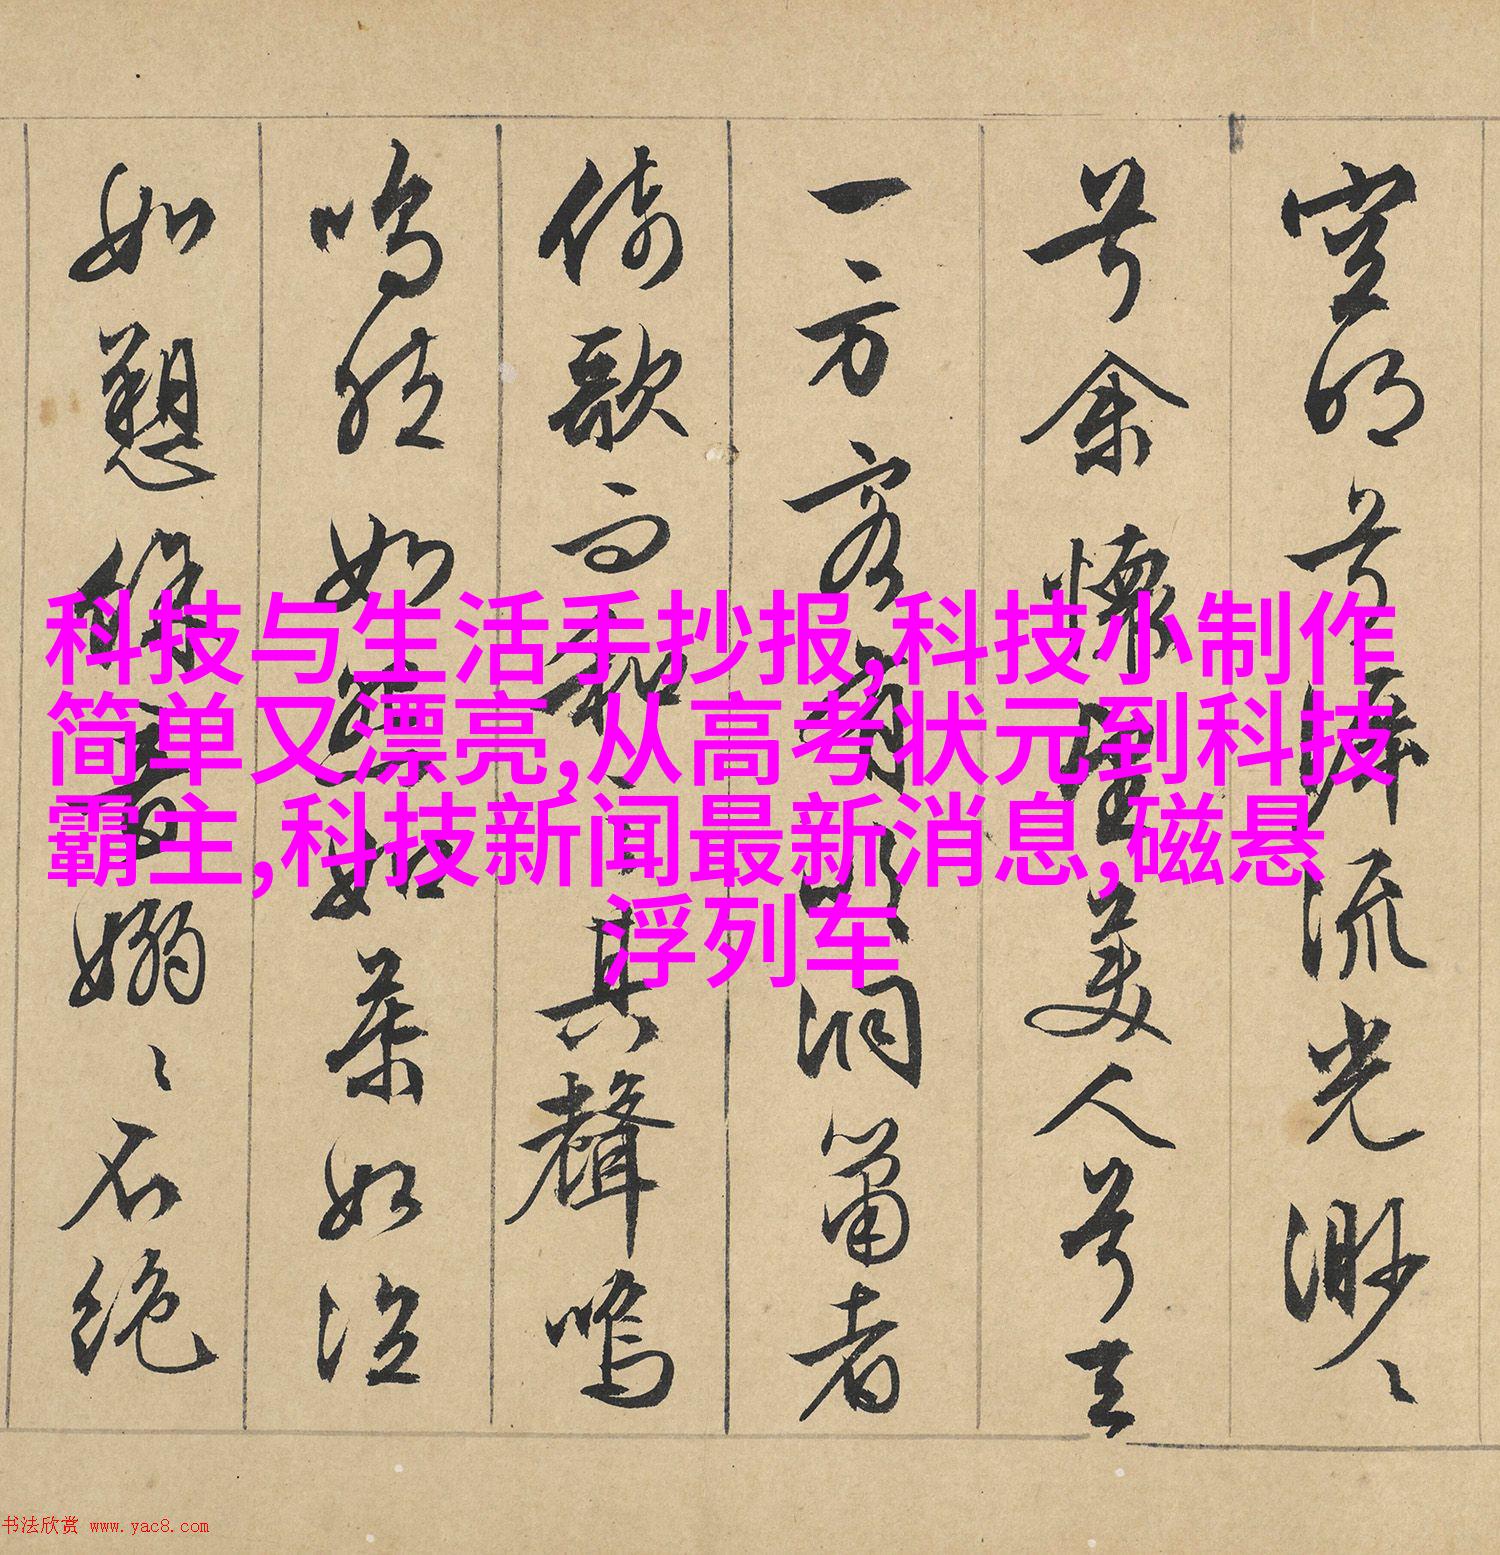 空明兮泝流光渺〻
兮余懷望美人兮天
一方客有吹洞簫者
倚歌而和之其聲嗚
嗚然如怨如慕如泣
如愬餘音嫋〻不絕
科技与生活手抄报,科技小制作
简单又漂亮,从高考状元到科技
霸主,科技新闻最新消息,磁悬
浮列车
书法欣赏 www.yac8.com